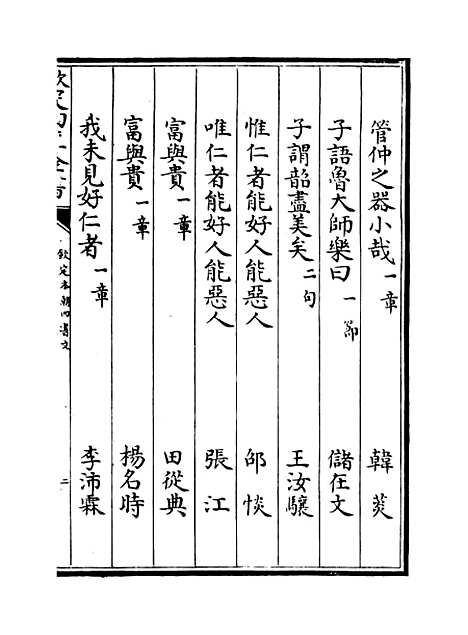 管仲之器小哉 一章 韓菼
子語魯大師樂曰 一節 儲在文
子謂韶盡美矣 二句 王汝驤
惟仁者能好人能惡人 邱惔
唯仁者能好人能惡人 張江
富與貴 一章 田從典
富與貴 一章 楊名時
我未見好仁者 一章 李沛霖
欽定四庫全書 欽定本朝四書文 二